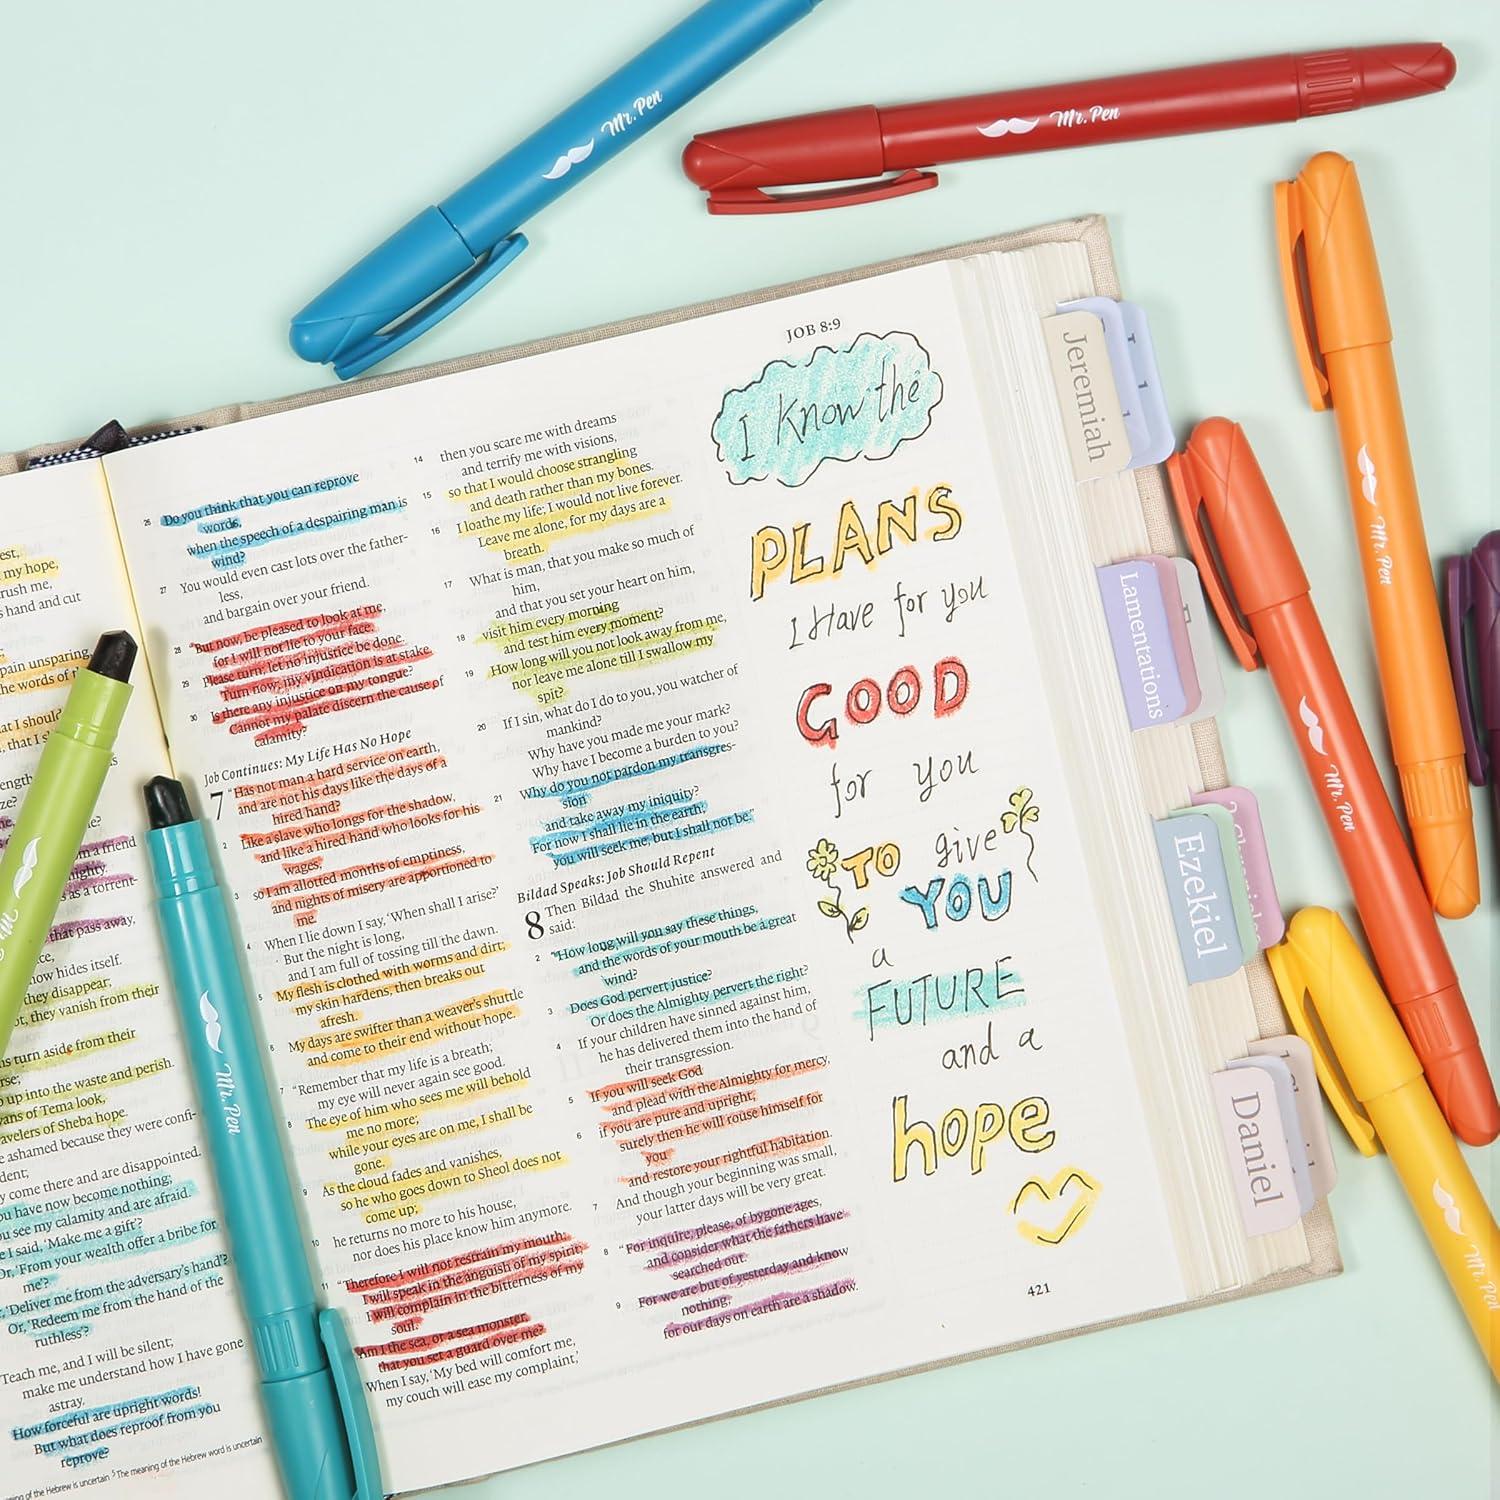 Mr. Pen
Mr. Pen
Mr. Pen
Mr. Pen
Mr. Pen
Mr. Pen
Mr. Pen
JOB 8:9
est,
my hope,
rush me,
s hand and cut
pain unsparing,
he words of
at I should
, that I
ength
ze?
m a friend
nighty.
s as a torrent-
that pass away,
ce,
now hides itself.
they disappear,
ot, they vanish from their
ns turn aside from their
rse;
o up into the waste and perish.
vans of Tema look,
avelers of Sheba hope.
e ashamed because they were confi-
dent;
y come there and are disappointed.
ou have now become nothing;
ou see my calamity and are afraid.
e I said, 'Make me a gift'?
Or, 'From your wealth offer a bribe for
me'?
, 'Deliver me from the adversary's hand'?
Or, 'Redeem me from the hand of the
ruthless'?
Teach me, and I will be silent;
make me understand how I have gone
astray.
How forceful are upright words!
But what does reproof from you
reprove?
ng of the Hebrew is uncertain 5 The meaning of the Hebrew word is uncertain
26 Do you think that you can reprove
words,
when the speech of a despairing man is
wind?
27 You would even cast lots over the father-
less,
and bargain over your friend.
28 "But now, be pleased to look at me,
for I will not lie to your face.
29 Please turn; let no injustice be done.
Turn now; my vindication is at stake.
30 Is there any injustice on my tongue?
Cannot my palate discern the cause of
calamity?
Job Continues: My Life Has No Hope
7 "Has not man a hard service on earth,
and are not his days like the days of a
hired hand?
2 Like a slave who longs for the shadow,
and like a hired hand who looks for his
wages,
3 so I am allotted months of emptiness,
and nights of misery are apportioned to
me.
4 When I lie down I say, 'When shall I arise?'
But the night is long,
and I am full of tossing till the dawn.
5 My flesh is clothed with worms and dirt;
my skin hardens, then breaks out
afresh.
6 My days are swifter than a weaver's shuttle
and come to their end without hope.
7 "Remember that my life is a breath;
my eye will never again see good.
8 The eye of him who sees me will behold
me no more;
while your eyes are on me, I shall be
gone.
9 As the cloud fades and vanishes,
so he who goes down to Sheol does not
come up;
10 he returns no more to his house,
nor does his place know him anymore.
11 "Therefore I will not restrain my mouth;
I will speak in the anguish of my spirit;
I will complain in the bitterness of my
soul.
12 Am I the sea, or a sea monster,
that you set a guard over me?
13 When I say, 'My bed will comfort me,
my couch will ease my complaint,'
14 then you scare me with dreams
and terrify me with visions,
15 so that I would choose strangling
and death rather than my bones.
16 I loathe my life; I would not live forever.
Leave me alone, for my days are a
breath.
17 What is man, that you make so much of
him,
and that you set your heart on him,
18 visit him every morning
and test him every moment?
19 How long will you not look away from me,
nor leave me alone till I swallow my
spit?
20 If I sin, what do I do to you, you watcher of
mankind?
Why have you made me your mark?
Why have I become a burden to you?
21 Why do you not pardon my transgres-
sion
and take away my iniquity?
For now I shall lie in the earth;
you will seek me, but I shall not be."
Bildad Speaks: Job Should Repent
8 Then Bildad the Shuhite answered and
said:
2 "How long will you say these things,
and the words of your mouth be a great
wind?
3 Does God pervert justice?
Or does the Almighty pervert the right?
4 If your children have sinned against him,
he has delivered them into the hand of
their transgression.
5 If you will seek God
and plead with the Almighty for mercy,
6 if you are pure and upright,
surely then he will rouse himself for
you
and restore your rightful habitation.
7 And though your beginning was small,
your latter days will be very great.
8 "For inquire, please, of bygone ages,
and consider what the fathers have
searched out.
9 For we are but of yesterday and know
nothing,
for our days on earth are a shadow.
I Know the
PLANS
I Have for you
GOOD
for you
TO give
YOU
a
FUTURE
and a
hope
421
Jeremiah
Lamentations
Ezekiel
Daniel